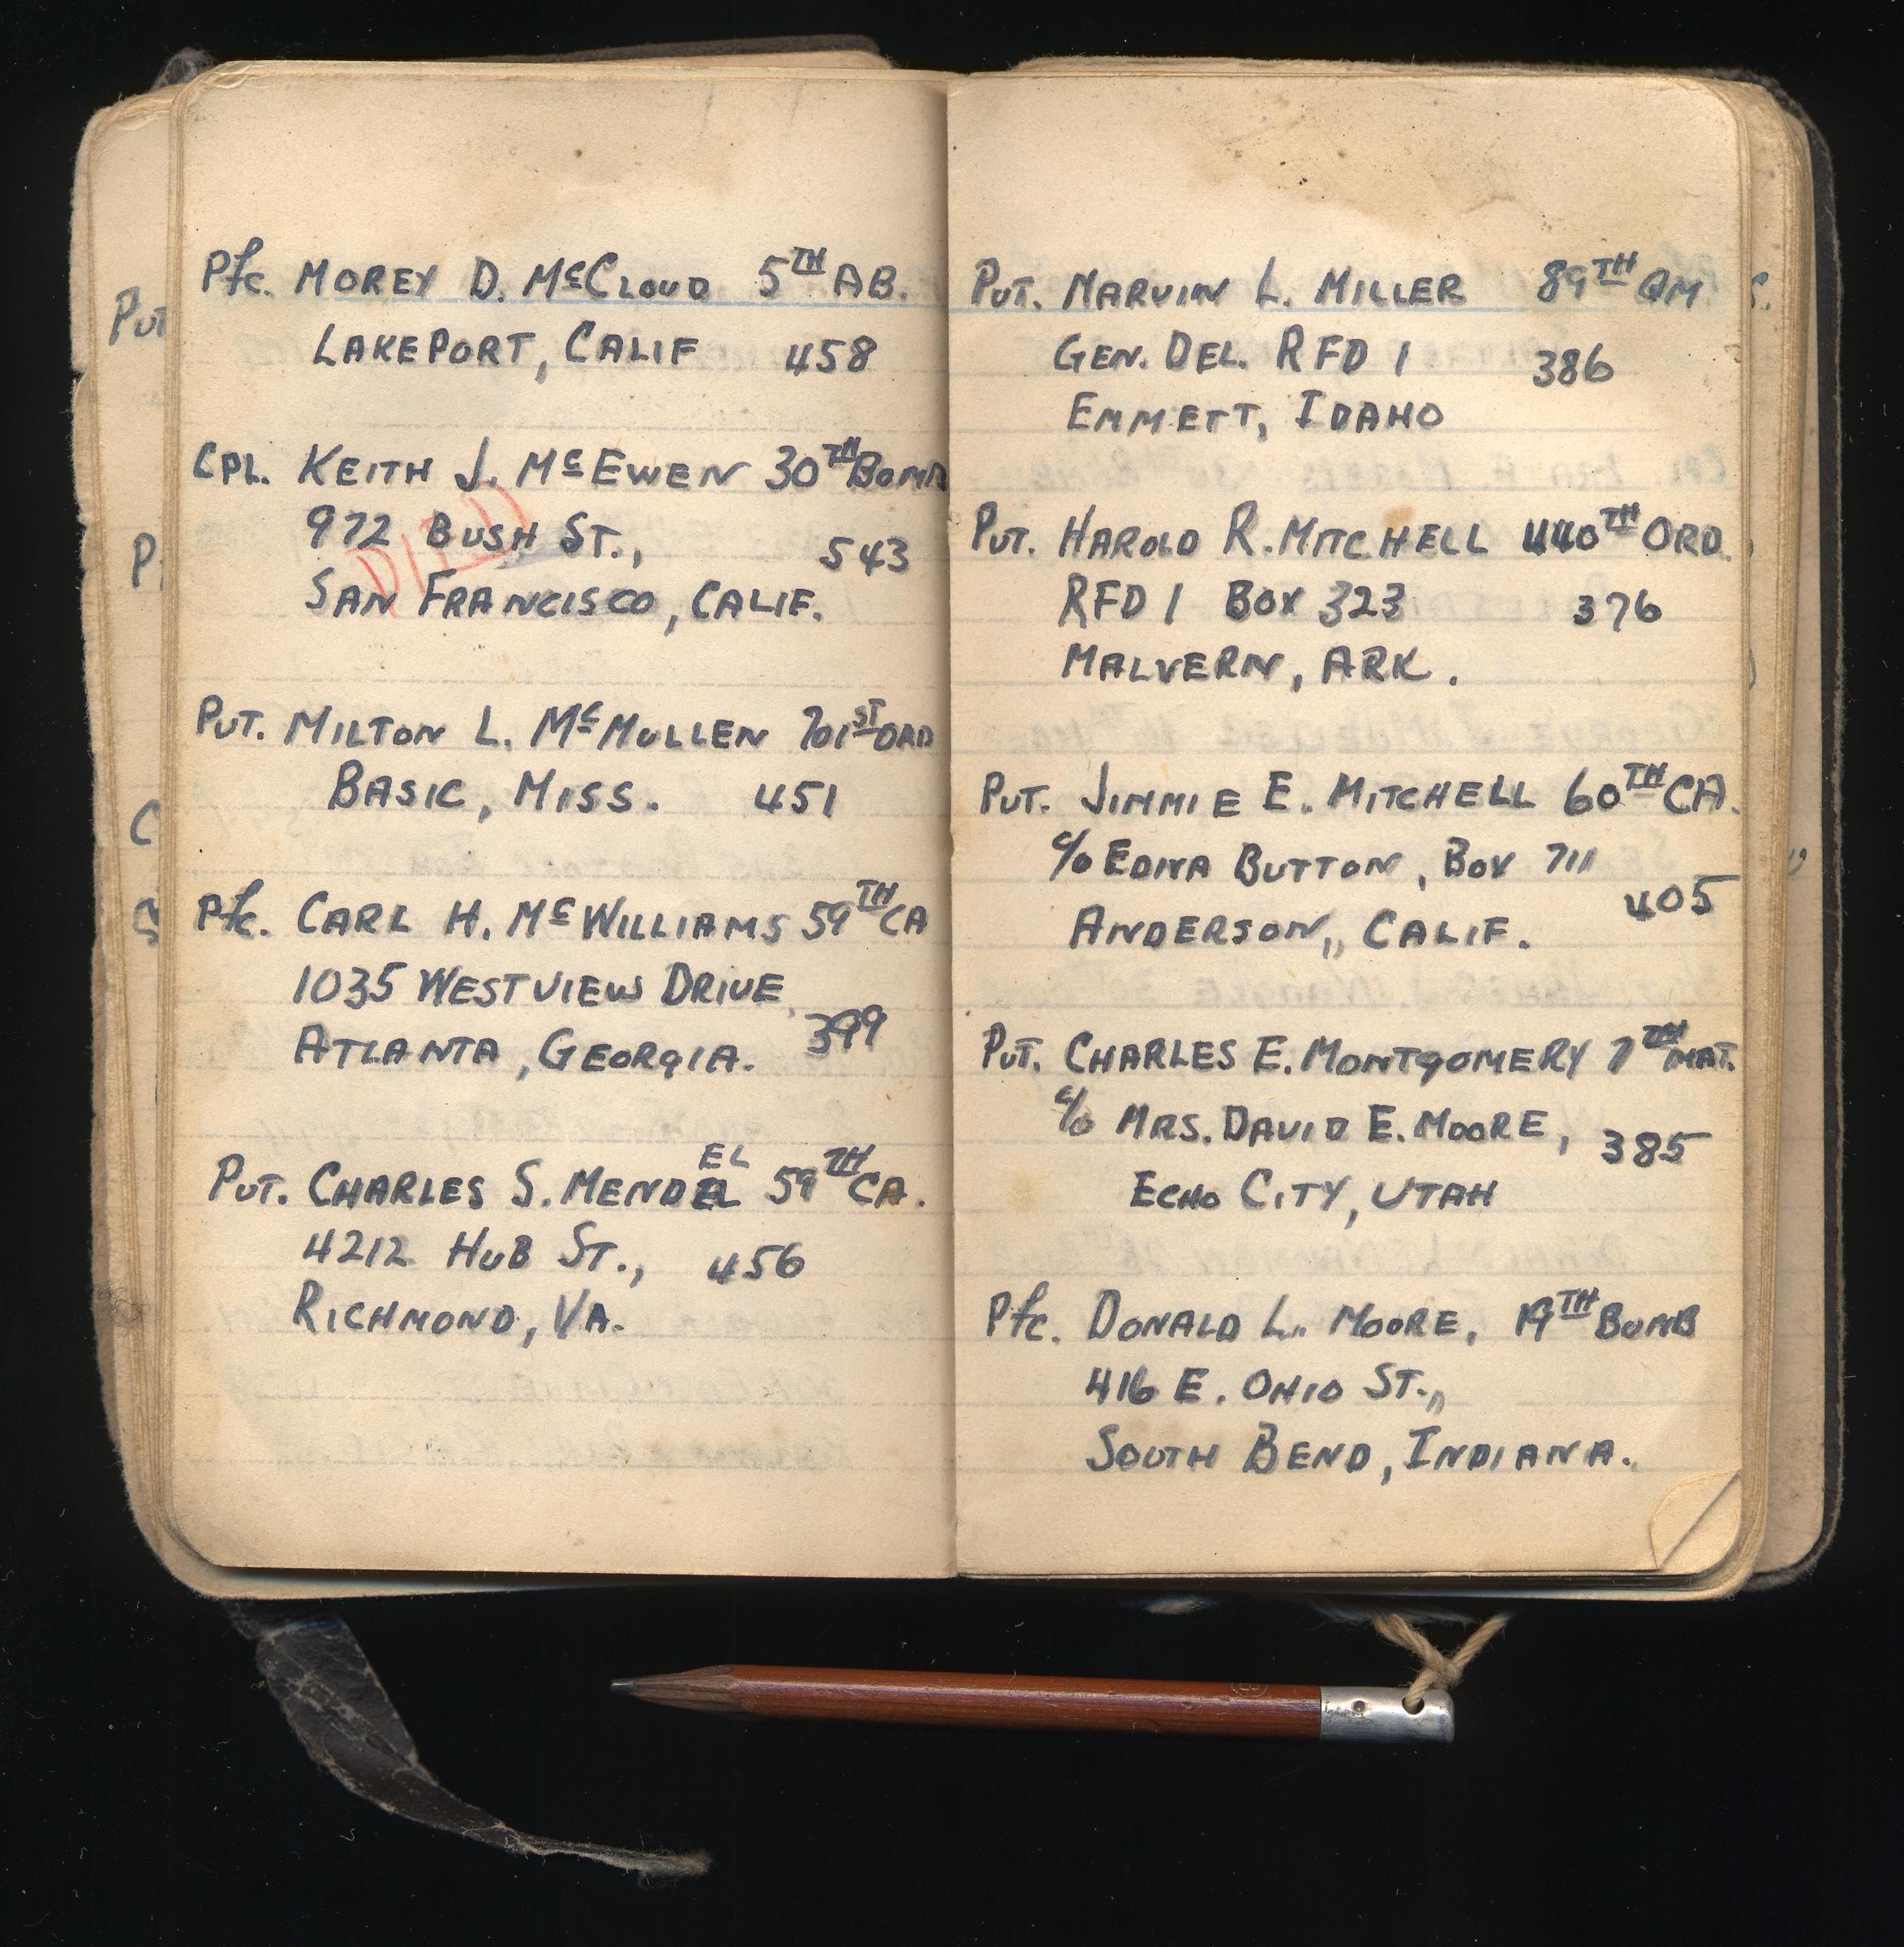 Pfc. MOREY D. McCLOUD 5TH AB.
LAKEPORT, CALIF 458
CPL. KEITH J. McEWEN 30TH BOMB
972 BUSH ST., 543
DIED
SAN FRANCISCO, CALIF.
PVT. MILTON L. McMULLEN 701ST ORD
BASIC, MISS. 451
Pfc. CARL H. McWILLIAMS 59TH CA
1035 WESTVIEW DRIVE
ATLANTA, GEORGIA. 399
EL
PVT. CHARLES S. MENDEL 59TH CA.
4212 HUB ST., 456
RICHMOND, VA.
PVT. MARVIN L. MILLER 89TH QM
GEN. DEL. RFD 1 386
EMMETT, IDAHO
PVT. HAROLD R. MITCHELL 440TH ORD.
RFD 1 BOX 323 376
MALVERN, ARK.
PVT. JIMMIE E. MITCHELL 60TH CA.
c/o EDNA BUTTON, BOX 711
ANDERSON,, CALIF. 405
PVT. CHARLES E. MONTGOMERY 7TH MAT.
c/o MRS. DAVID E. MOORE, 385
ECHO CITY, UTAH
Pfc. DONALD L. MOORE, 19TH BOMB
416 E. OHIO ST.,,
SOUTH BEND, INDIANA.